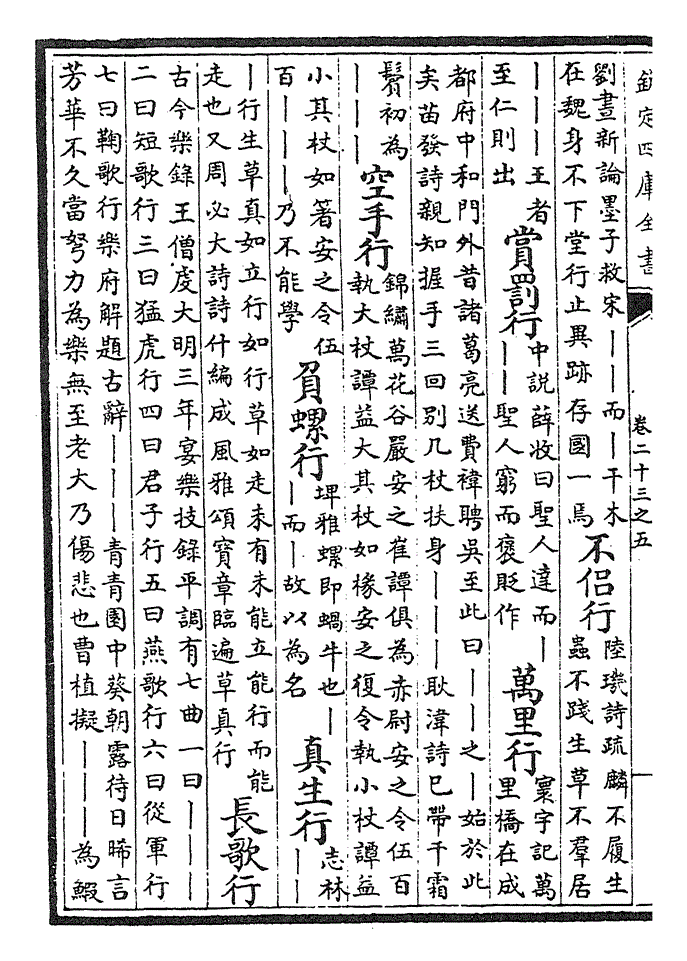 欽定四庫全書
卷二十三之五
一
劉晝新論墨子救宋——而—干木
在魏身不下堂行止異跡存國一焉
不侶行
陸璣詩疏麟不履生
蟲不踐生草不羣居
———王者
至仁則出
賞罰行
中說薛收曰聖人達而—
——聖人窮而褒貶作
萬里行
寰宇記萬
里橋在成
都府中和門外昔諸葛亮送費禕聘吳至此曰——之—始於此
矣苗發詩親知握手三回別几杖扶身———耿湋詩已帶千霜
鬢初為
———
空手行
錦繡萬花谷嚴安之崔譚俱為赤尉安之令伍百
執大杖譚益大其杖如椽安之復令執小杖譚益
小其杖如箸安之令伍
百———乃不能學
負螺行
埤雅螺即蝸牛也—
—而—故以為名
真生行
志林
——
—行生草真如立行如行草如走未有未能立能行而能
走也又周必大詩詩什編成風雅頌寶章臨遍草真行
長歌行
古今樂錄王僧虔大明三年宴樂技錄平調有七曲一曰———
二曰短歌行三曰猛虎行四曰君子行五曰燕歌行六曰從軍行
七曰鞠歌行樂府解題古辭———青青園中葵朝露待日晞言
芳華不久當努力為樂無至老大乃傷悲也曹植擬———為鰕